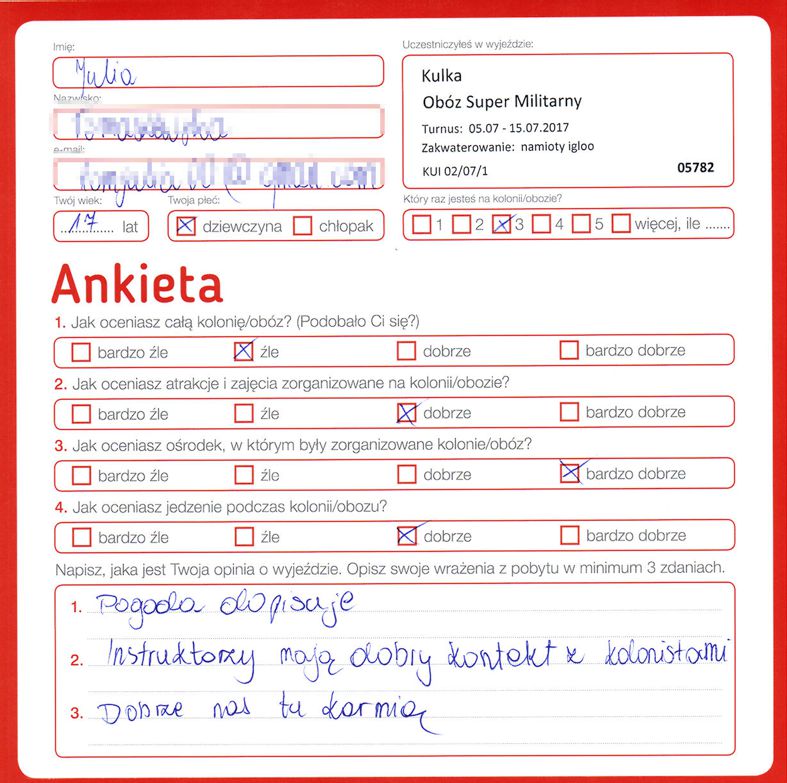 Imię:
Julia
Nazwisko:
e-mail:
Twój wiek:
17 lat
Twoja płeć:
dziewczyna chłopak
Uczestniczyłeś w wyjeździe:
Kulka
Obóz Super Militarny
Turnus: 05.07 - 15.07.2017
Zakwaterowanie: namioty igloo
KUI 02/07/1 05782
Który raz jesteś na kolonii/obozie?
1 2 3 4 5 więcej, ile .......
Ankieta
1. Jak oceniasz całą kolonię/obóz? (Podobało Ci się?)
bardzo źle źle dobrze bardzo dobrze
2. Jak oceniasz atrakcje i zajęcia zorganizowane na kolonii/obozie?
bardzo źle źle dobrze bardzo dobrze
3. Jak oceniasz ośrodek, w którym były zorganizowane kolonie/obóz?
bardzo źle źle dobrze bardzo dobrze
4. Jak oceniasz jedzenie podczas kolonii/obozu?
bardzo źle źle dobrze bardzo dobrze
Napisz, jaka jest Twoja opinia o wyjeździe. Opisz swoje wrażenia z pobytu w minimum 3 zdaniach.
1. Pogoda dopisuje
2. Instruktorzy mają dobry kontekt z kolonistami
3. Dobrze nas tu karmią